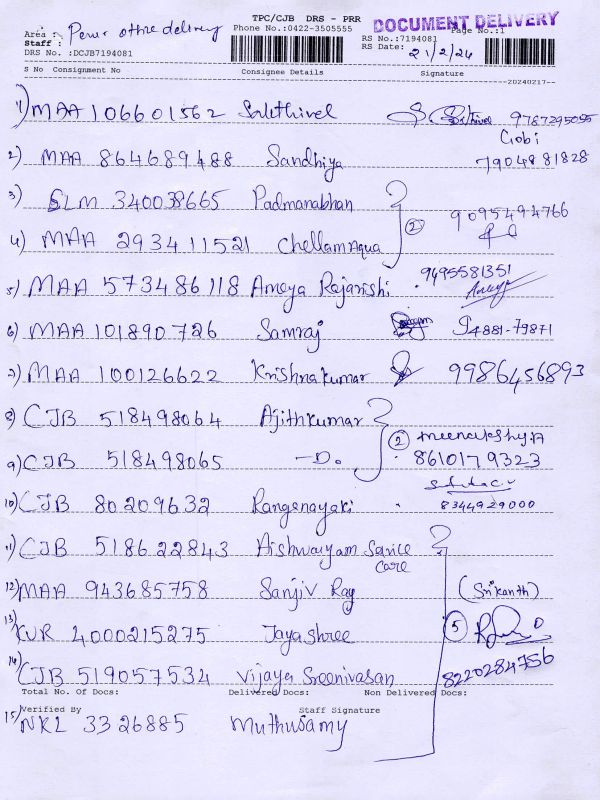 TPC/CJB DRS - PRR
DOCUMENT DELIVERY
Area : Perur othre delivery
Phone No.:0422-3505555
Page No.:1
Staff :
RS No.:7194081
DRS No. :DCJB7194081
RS Date: 21/2/24
S No Consignment No Consignee Details Signature
20240217--
1) MAA 106601562 Sakthivel 9787295095
Gobi
2) MAA 864689488 Sandhiya 7904881828
3) SLM 340038665 Padmanabhan
(2) 9095494766
4) MAA 293411521 Chellam Aqua
5) MAA 573486118 Ameya Rajarishi 9495581351
6) MAA 101890726 Samraj 94881-79871
7) MAA 100126622 Krishnakumar 9986456893
8) CJB 518498064 Ajithkumar
(2) meenakshy
9) CJB 518498065 -Do. 8610179323
10) CJB 80209632 Ranganayaki 8344929000
11) CJB 518622843 Aishwaryam Service
care
12) MAA 943685758 Sanjiv Ray (Srikanth)
13) KUR 4000215275 Jayashree (5)
14) CJB 519057534 Vijaya Sreenivasan 8220284756
Total No. Of Docs: Delivered Docs: Non Delivered Docs:
Verified By Staff Signature
15) NKL 3326885 Muthusamy